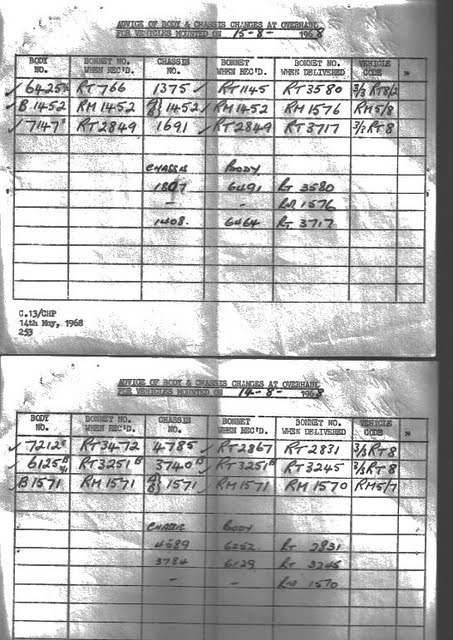 ADVICE OF BODY & CHASSIS CHANGES AT OVERHAUL
FOR VEHICLES MOUNTED ON 15-8- 1968
BODY NO. BONNET NO. WHEN REC'D. CHASSIS NO. BONNET WHEN REC'D. BONNET NO. WHEN DELIVERED VEHICLE CODE
✓ 6425 RT 766 1375 ✓ RT 1145 RT 3580 3/3 RT8/2
✓ B.1452 RM 1452 1452 ✓ RM 1452 RM 1576 RM 5/8
✓ 7147 RT 2849 1691 ✓ RT 2849 RT 3717 RT 8
CHASSIS BODY
1807 6491 RT 3580
- - RM 1576
1408. 6464 RT 3717
C.13/CHP
14th May, 1968
253
ADVICE OF BODY & CHASSIS CHANGES AT OVERHAUL
FOR VEHICLES MOUNTED ON 14-8- 1968
BODY NO. BONNET NO. WHEN REC'D. CHASSIS NO. BONNET WHEN REC'D. BONNET NO. WHEN DELIVERED VEHICLE CODE
✓ 7212 RT 3472 4785 ✓ RT 2867 RT 2831 3/3 RT 8
✓ 6125 RT 3251 3740 ✓ RT 3251 RT 3245 3/3 RT 8
B 1571 RM 1571 1571 ✓ RM 1571 RM 1570 RM 5/7
CHASSIS BODY
4589 6252 RT 2831
3784 6129 RT 3245
- - RM 1570